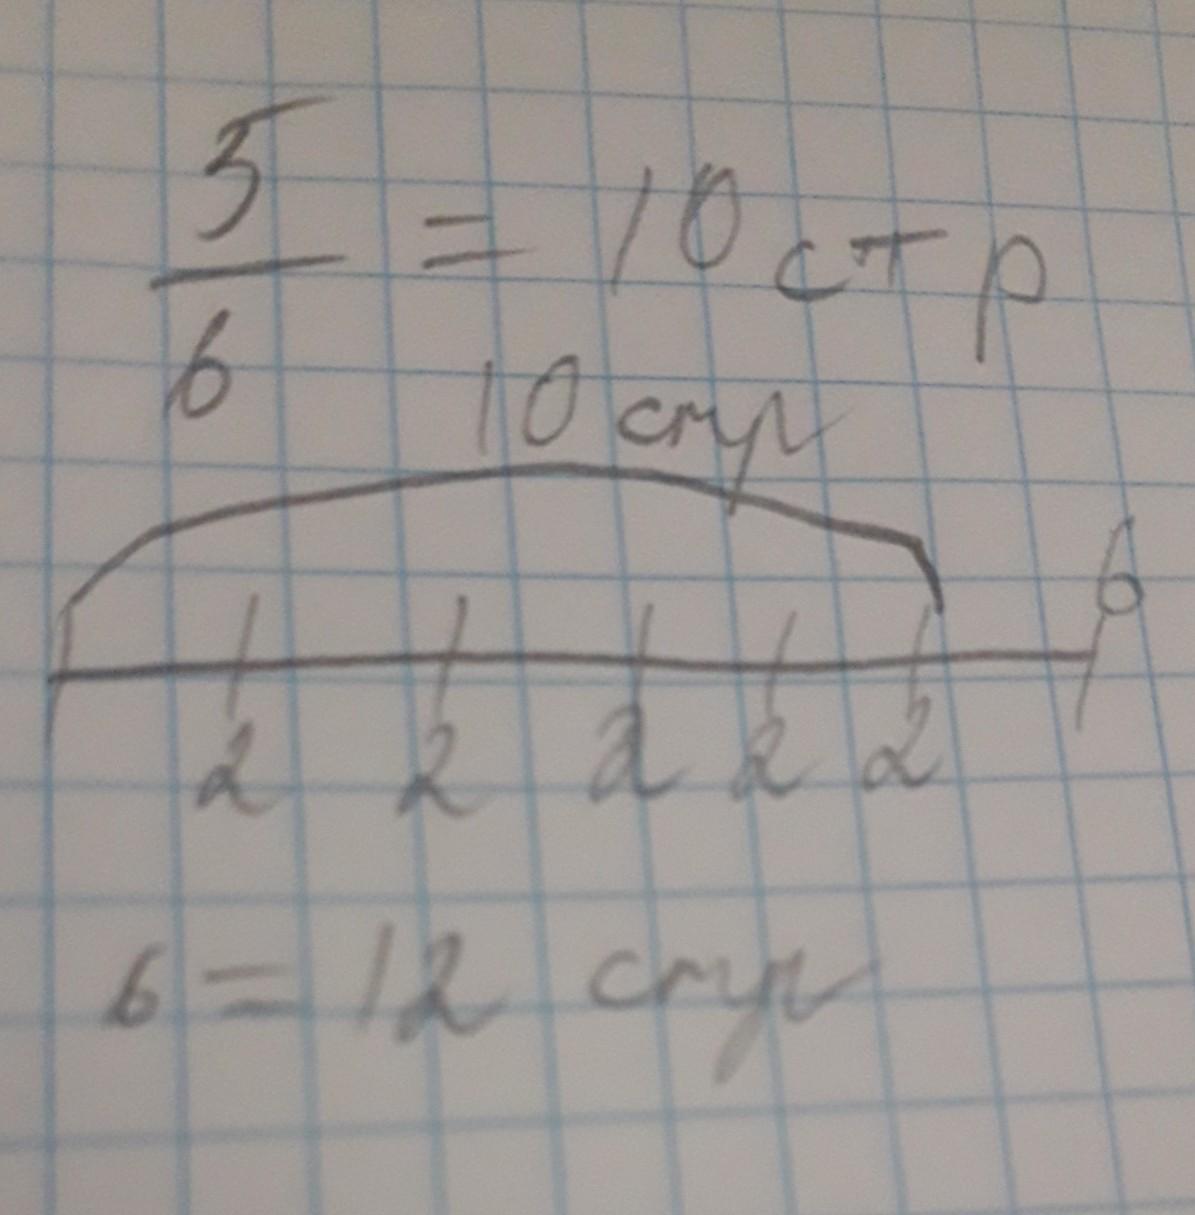 5/6 = 10 стр
10 стр
6
2 2 2 2 2
6 = 12 стр